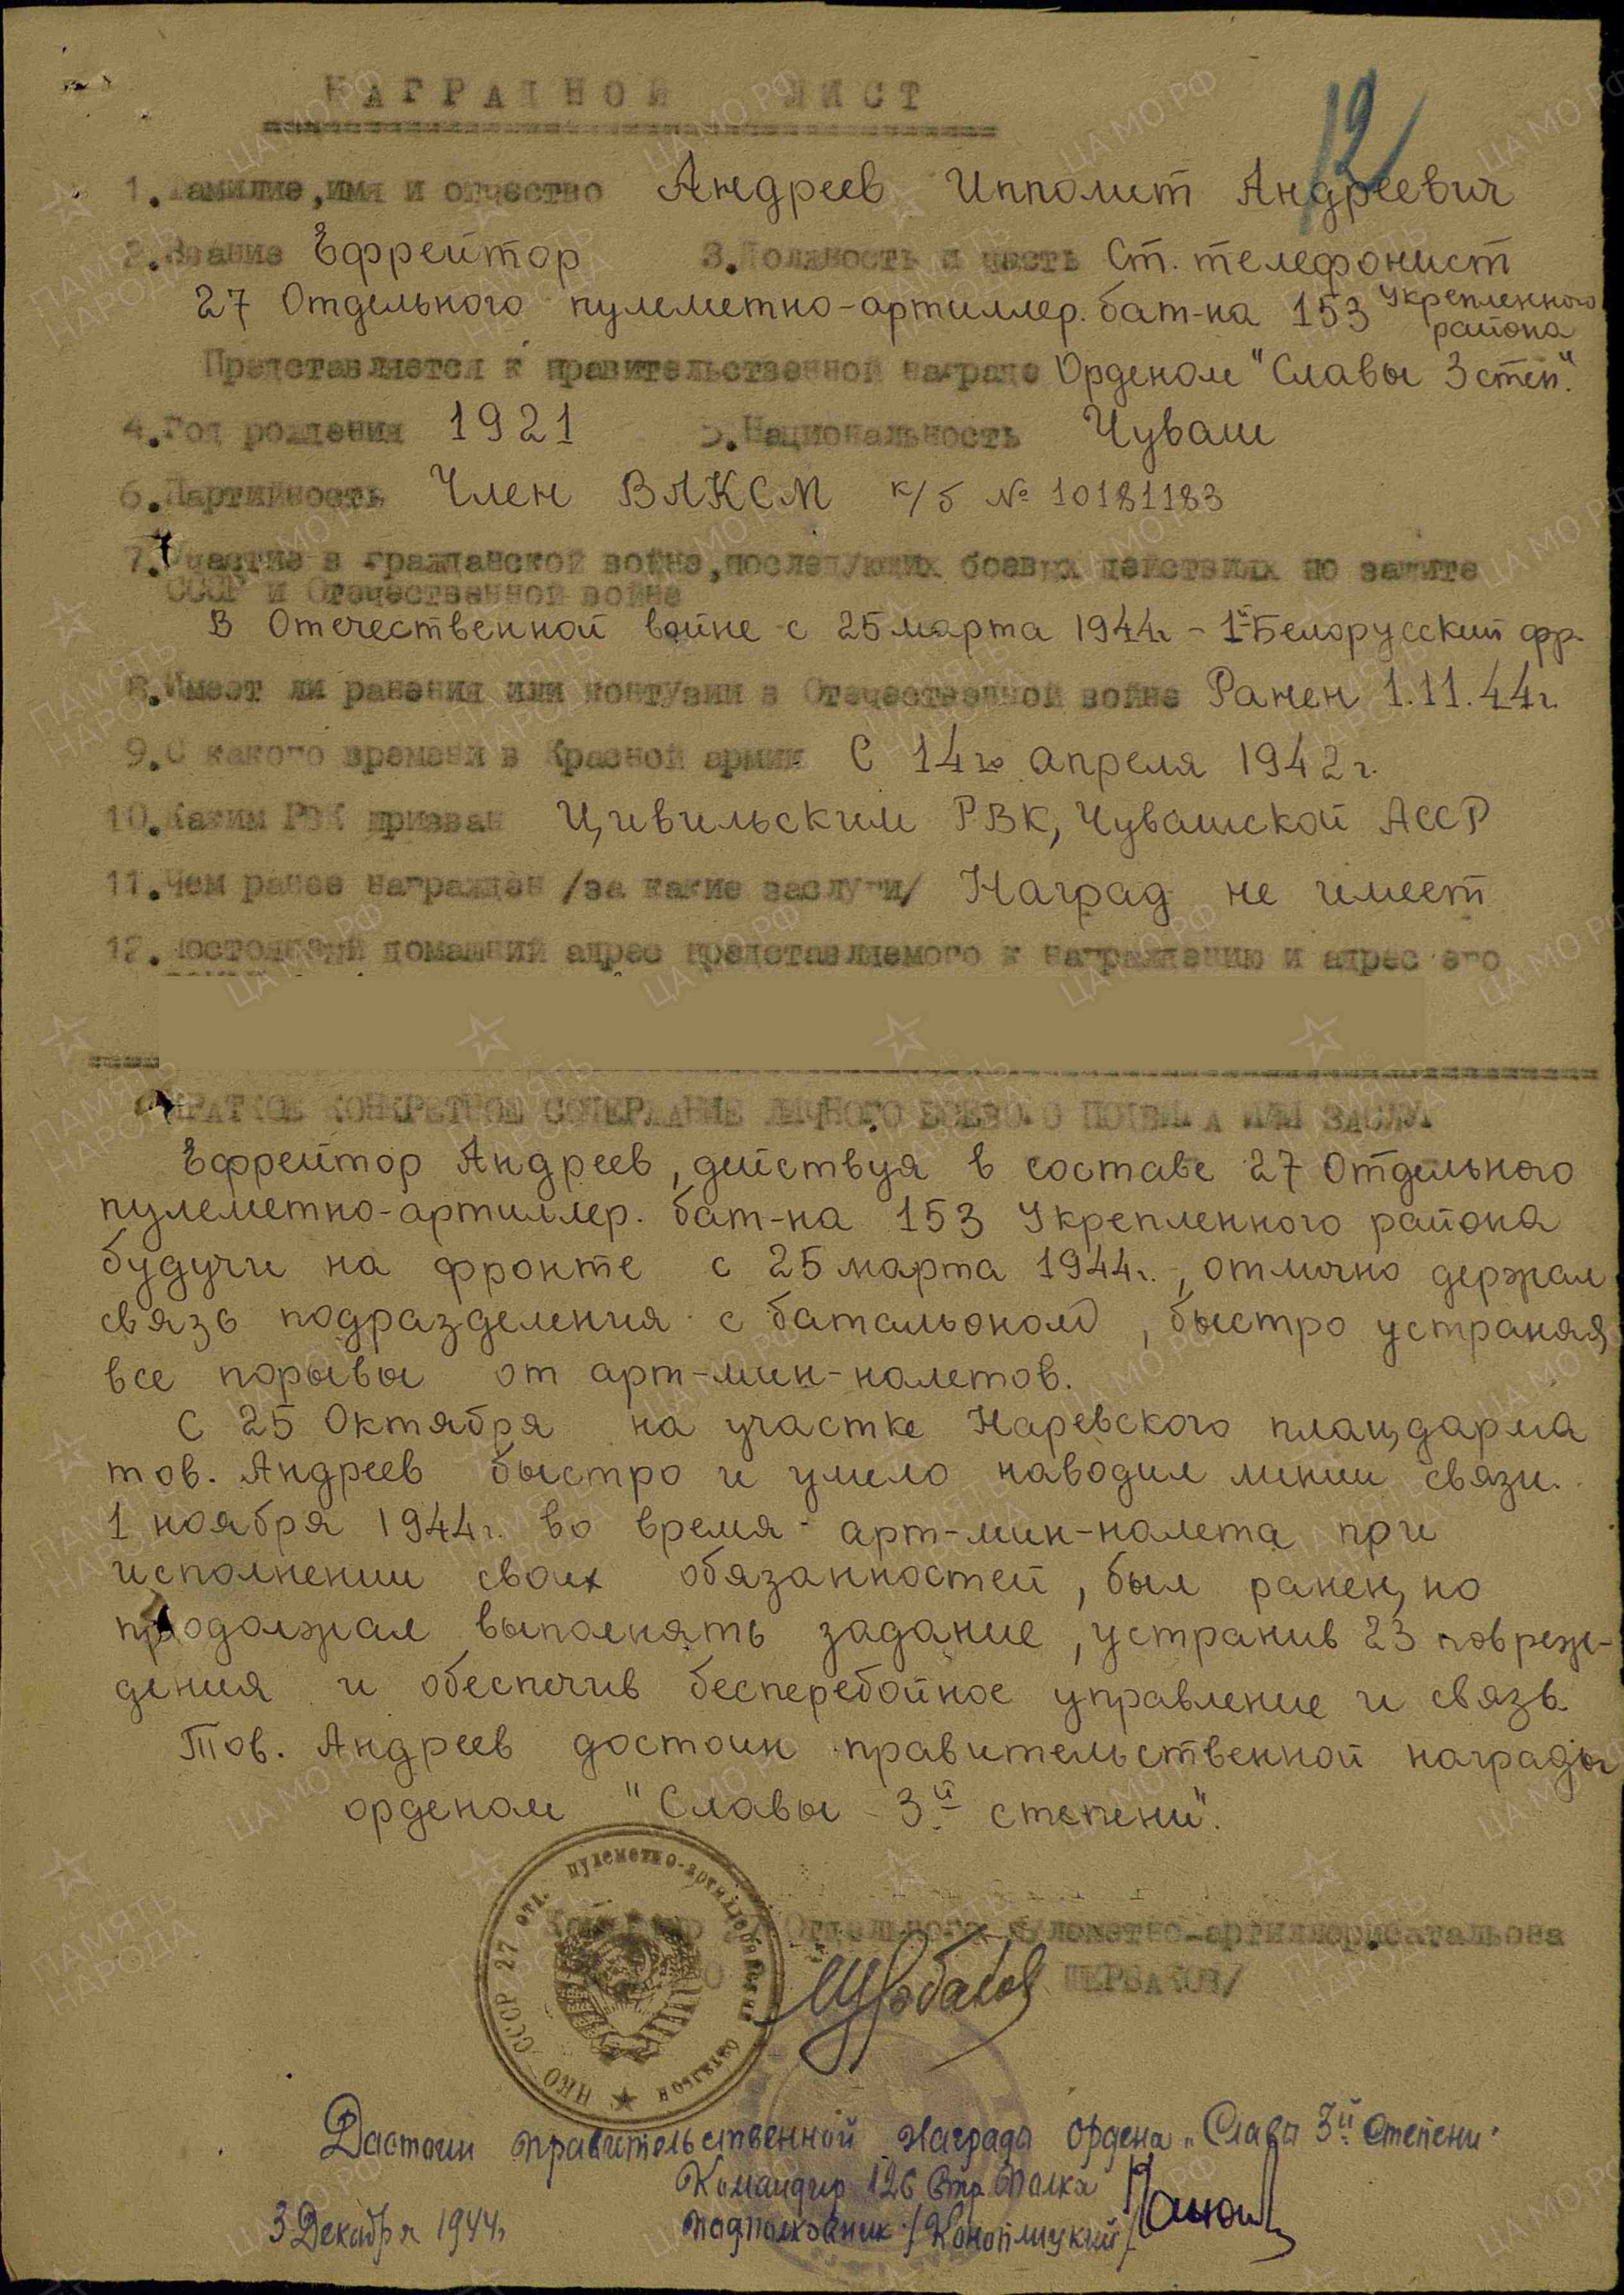 12
НАГРАДНОЙ ЛИСТ
1. Фамилие, имя и отчество Андреев Ипполит Андреевич
2. Звание Ефрейтор 3. Должность и часть Ст. телефонист
27 Отдельного пулеметно-артиллер. бат-на 153 Укрепленного района
Представляется к правительственной награде Орденом "Славы 3 степ."
4. Год рождения 1921 5. Национальность Чуваш
6. Партийность Член ВЛКСМ к/б № 10181183
7. Участие в гражданской войне, последующих боевых действиях по защите
СССР и Отечественной войне
В Отечественной войне с 25 марта 1944г - 1й Белорусский фр.
8. Имеет ли ранения или контузии в Отечественной войне Ранен 1.11.44г.
9. С какого времени в Красной армии С 14го апреля 1942г.
10. Каким РВК призван Цивильским РВК, Чувашской АССР
11. Чем ранее награжден /за какие заслуги/ Наград не имеет
12. Постоянный домашний адрес представляемого к награждению и адрес его
КРАТКОЕ КОНКРЕТНОЕ СОДЕРЖАНИЕ ЛИЧНОГО БОЕВОГО ПОДВИГА ИЛИ ЗАСЛУГ
Ефрейтор Андреев, действуя в составе 27 Отдельного
пулеметно-артиллер. бат-на 153 Укрепленного района
будучи на фронте с 25 марта 1944г., отлично держал
связь подразделения с батальоном, быстро устраняя
все порывы от арт-мин-налетов.
С 25 Октября на участке Наревского плацдарма
тов. Андреев быстро и умело наводил линии связи.
1 ноября 1944г. во время арт-мин-налета при
исполнении своих обязанностей, был ранен, но
продолжал выполнять задание, устранив 23 повреж-
дения и обеспечив бесперебойное управление и связь.
Тов. Андреев достоин правительственной награды
орденом "Славы 3й степени".
Командир 27 Отдельного пулеметно-артиллер.батальона
ЩЕРБАКОВ/
НКО СССР 27 отд. пулеметно-артиллерийский батальон
Щербаков
Достоин правительственной награды ордена "Славы 3й степени"
Командир 126 Стр Полка
3 Декабря 1944г подполковник /Коноплицкий/